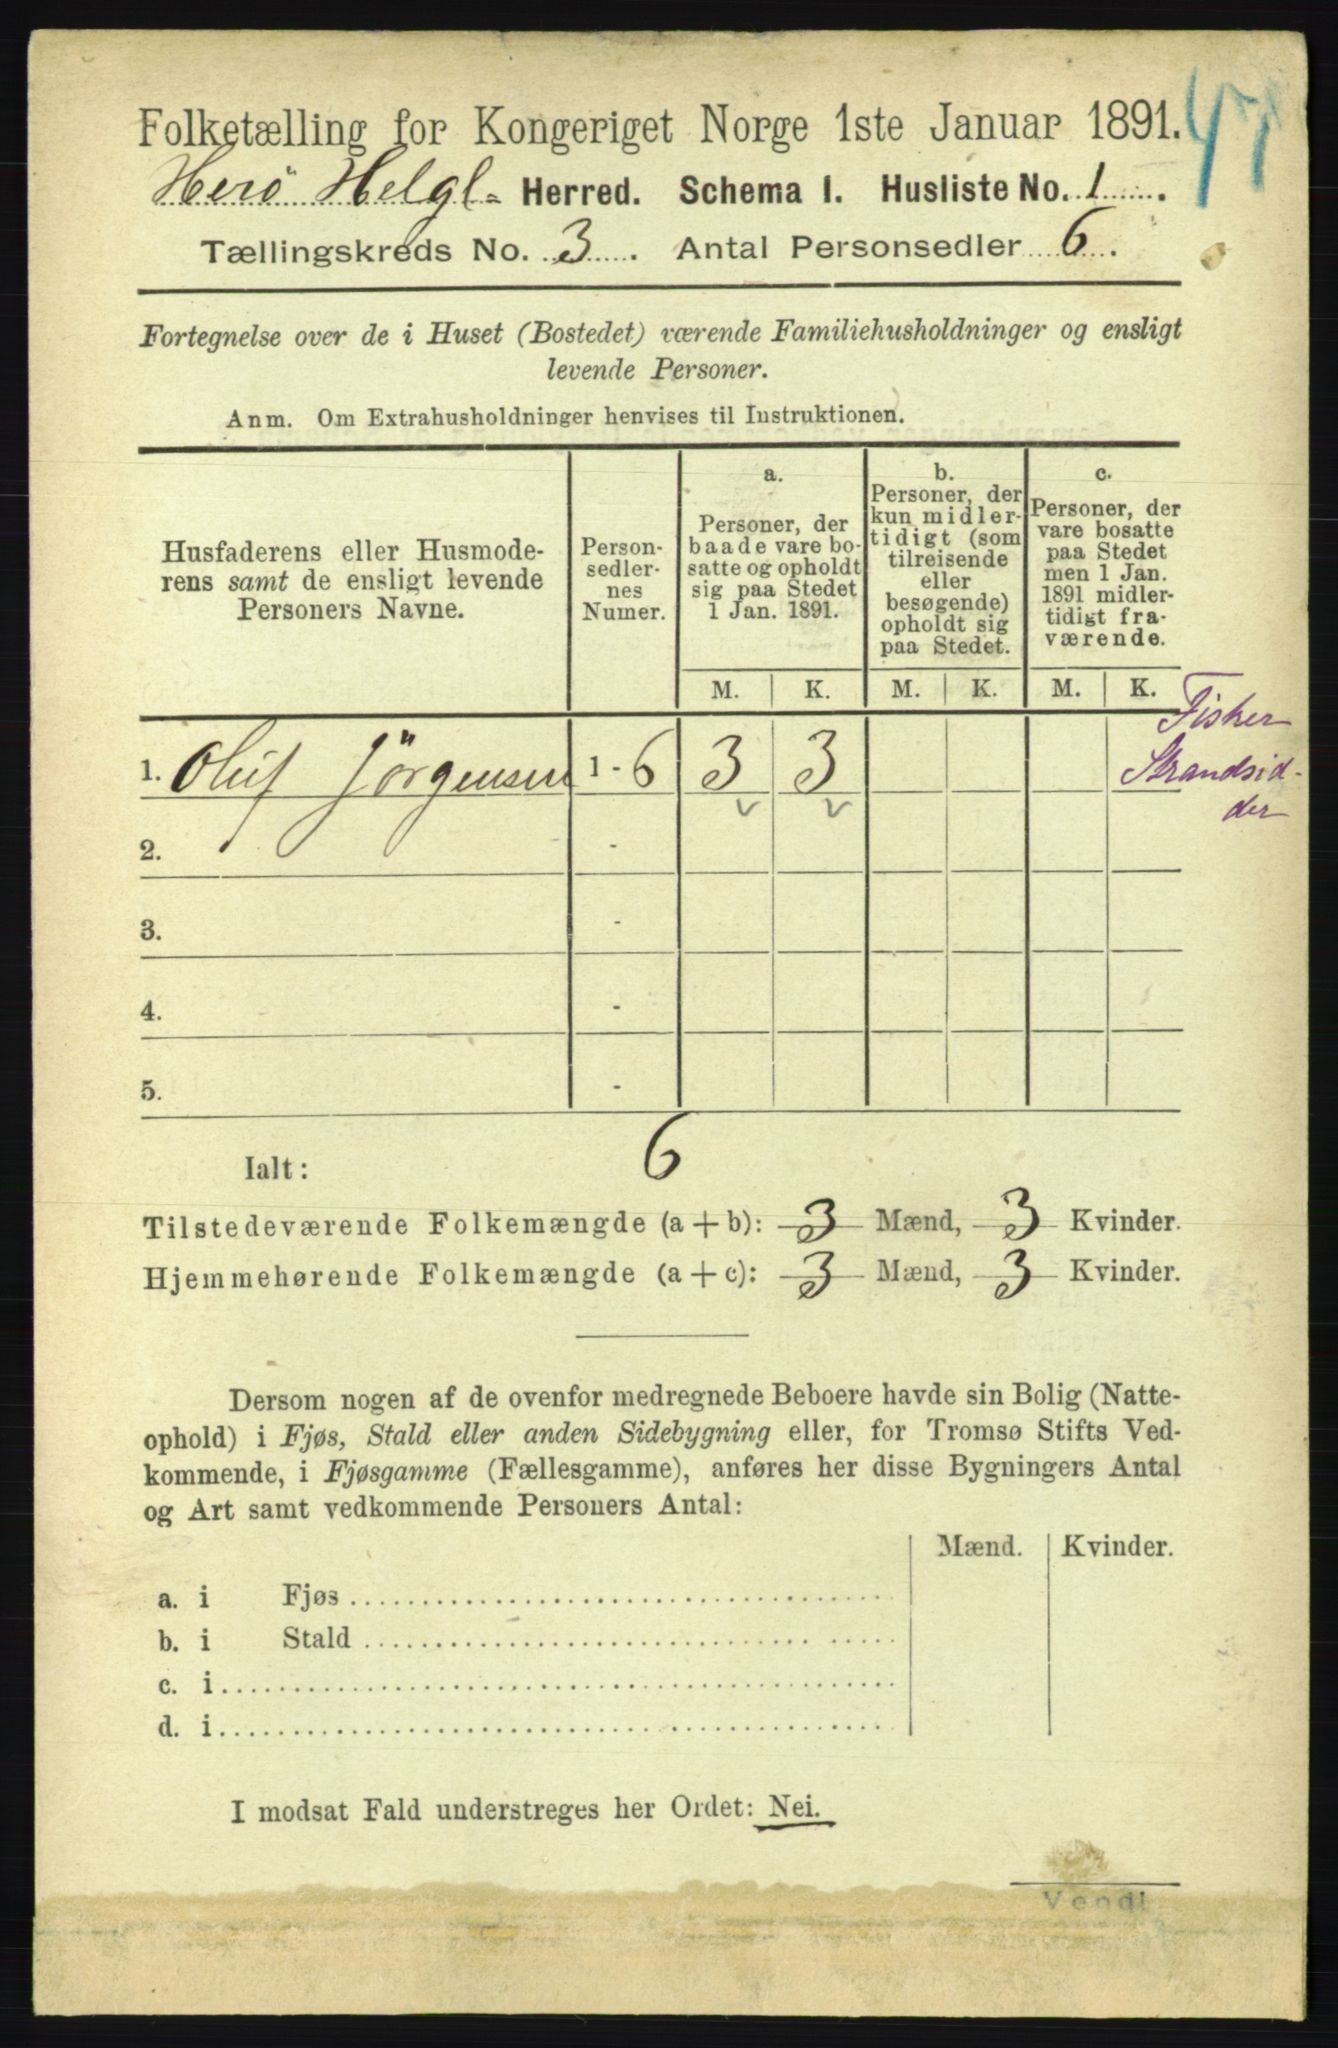 Folketælling for Kongeriget Norge 1ste Januar 1891.
Herö Helgl. Herred. Schema I. Husliste No. 1.
Tællingskreds No. 3. Antal Personsedler 6.
Fortegnelse over de i Huset (Bostedet) værende Familiehusholdninger og ensligt
levende Personer.
Anm. Om Extrahusholdninger henvises til Instruktionen.
Husfaderens eller Husmode-
rens samt de ensligt levende
Personers Navne.
Person-
sedler-
nes
Numer.
a.
Personer, der
baade vare bo-
satte og opholdt
sig paa Stedet
1 Jan. 1891.
b.
Personer, der
kun midler-
tidigt (som
tilreisende
eller
besøgende)
opholdt sig
paa Stedet.
c.
Personer, der
vare bosatte
paa Stedet
men 1 Jan.
1891 midler-
tidigt fra-
værende.
M. K. M. K. M. K.
Fisker
Strandsid-
der
1. Oluf Jörgensen 1 - 6 3 3
2. -
3. -
4. -
5. -
Ialt: 6
Tilstedeværende Folkemængde (a + b): 3 Mænd, 3 Kvinder.
Hjemmehørende Folkemængde (a + c): 3 Mænd, 3 Kvinder.
Dersom nogen af de ovenfor medregnede Beboere havde sin Bolig (Natte-
ophold) i Fjøs, Stald eller anden Sidebygning eller, for Tromsø Stifts Ved-
kommende, i Fjøsgamme (Fællesgamme), anføres her disse Bygningers Antal
og Art samt vedkommende Personers Antal:
Mænd. Kvinder.
a. i Fjøs
b. i Stald
c. i
d. i
I modsat Fald understreges her Ordet: Nei.
Vend!